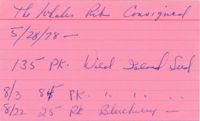 The Whales Rib Consigned
5/28/78 —
135 Pk. Wild Island Seed
8/3 84 PK. " " "
8/22 25 Pk Blueberry —